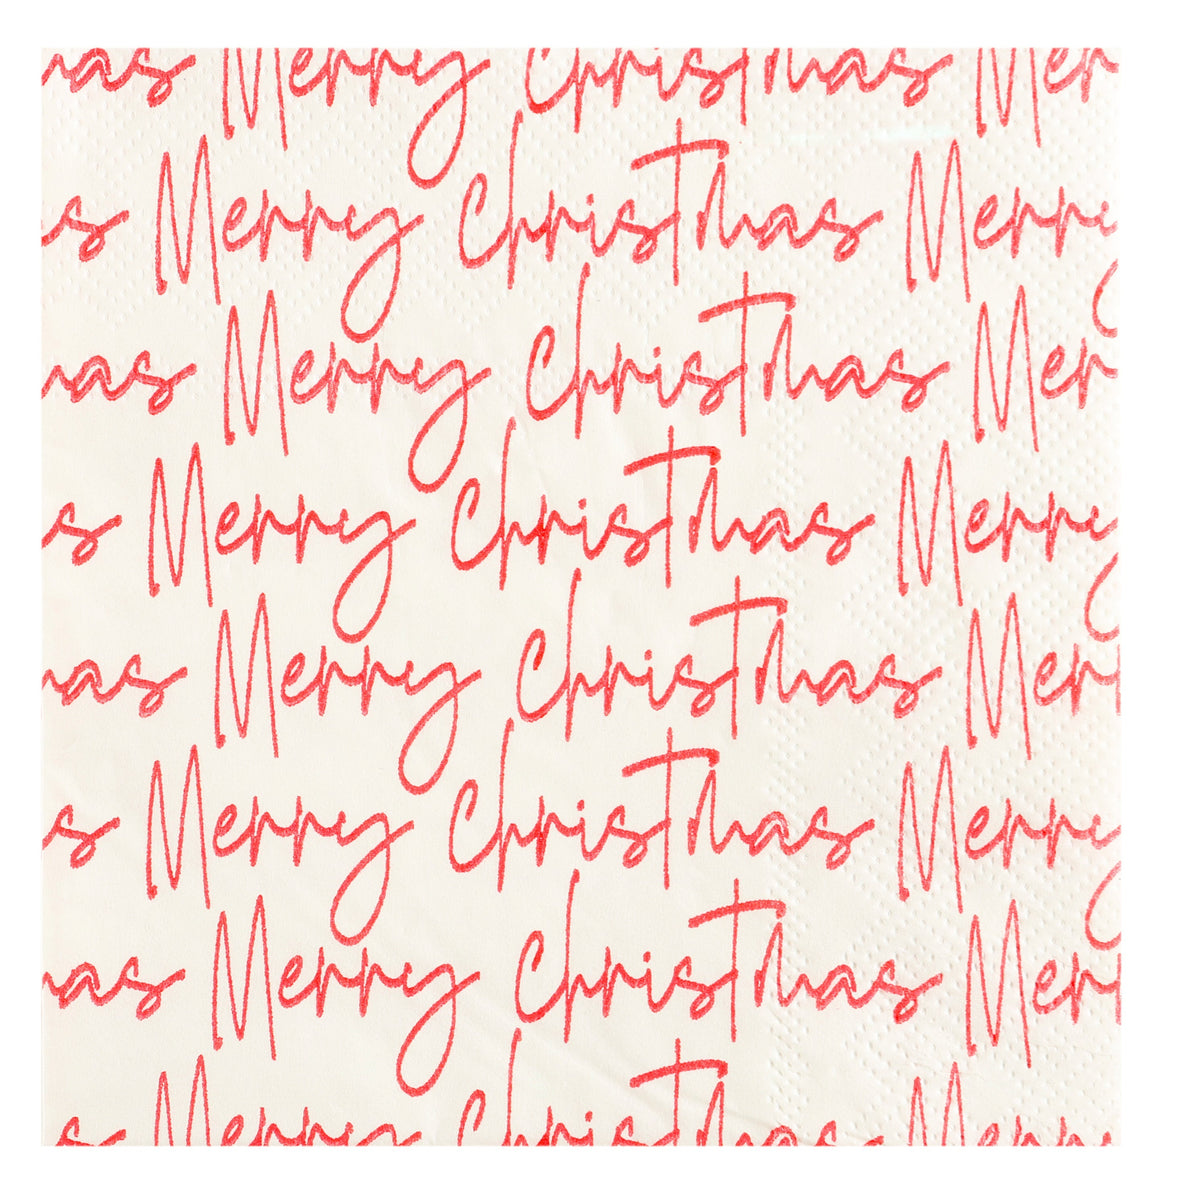 mas Merry Christmas Mer
as Merry Christmas Merry
mas Merry Christmas Mer
as Merry Christmas Merry
mas Merry Christmas Mer
as Merry Christmas Merry
mas Merry Christmas Mer
as Merry Christmas Merry